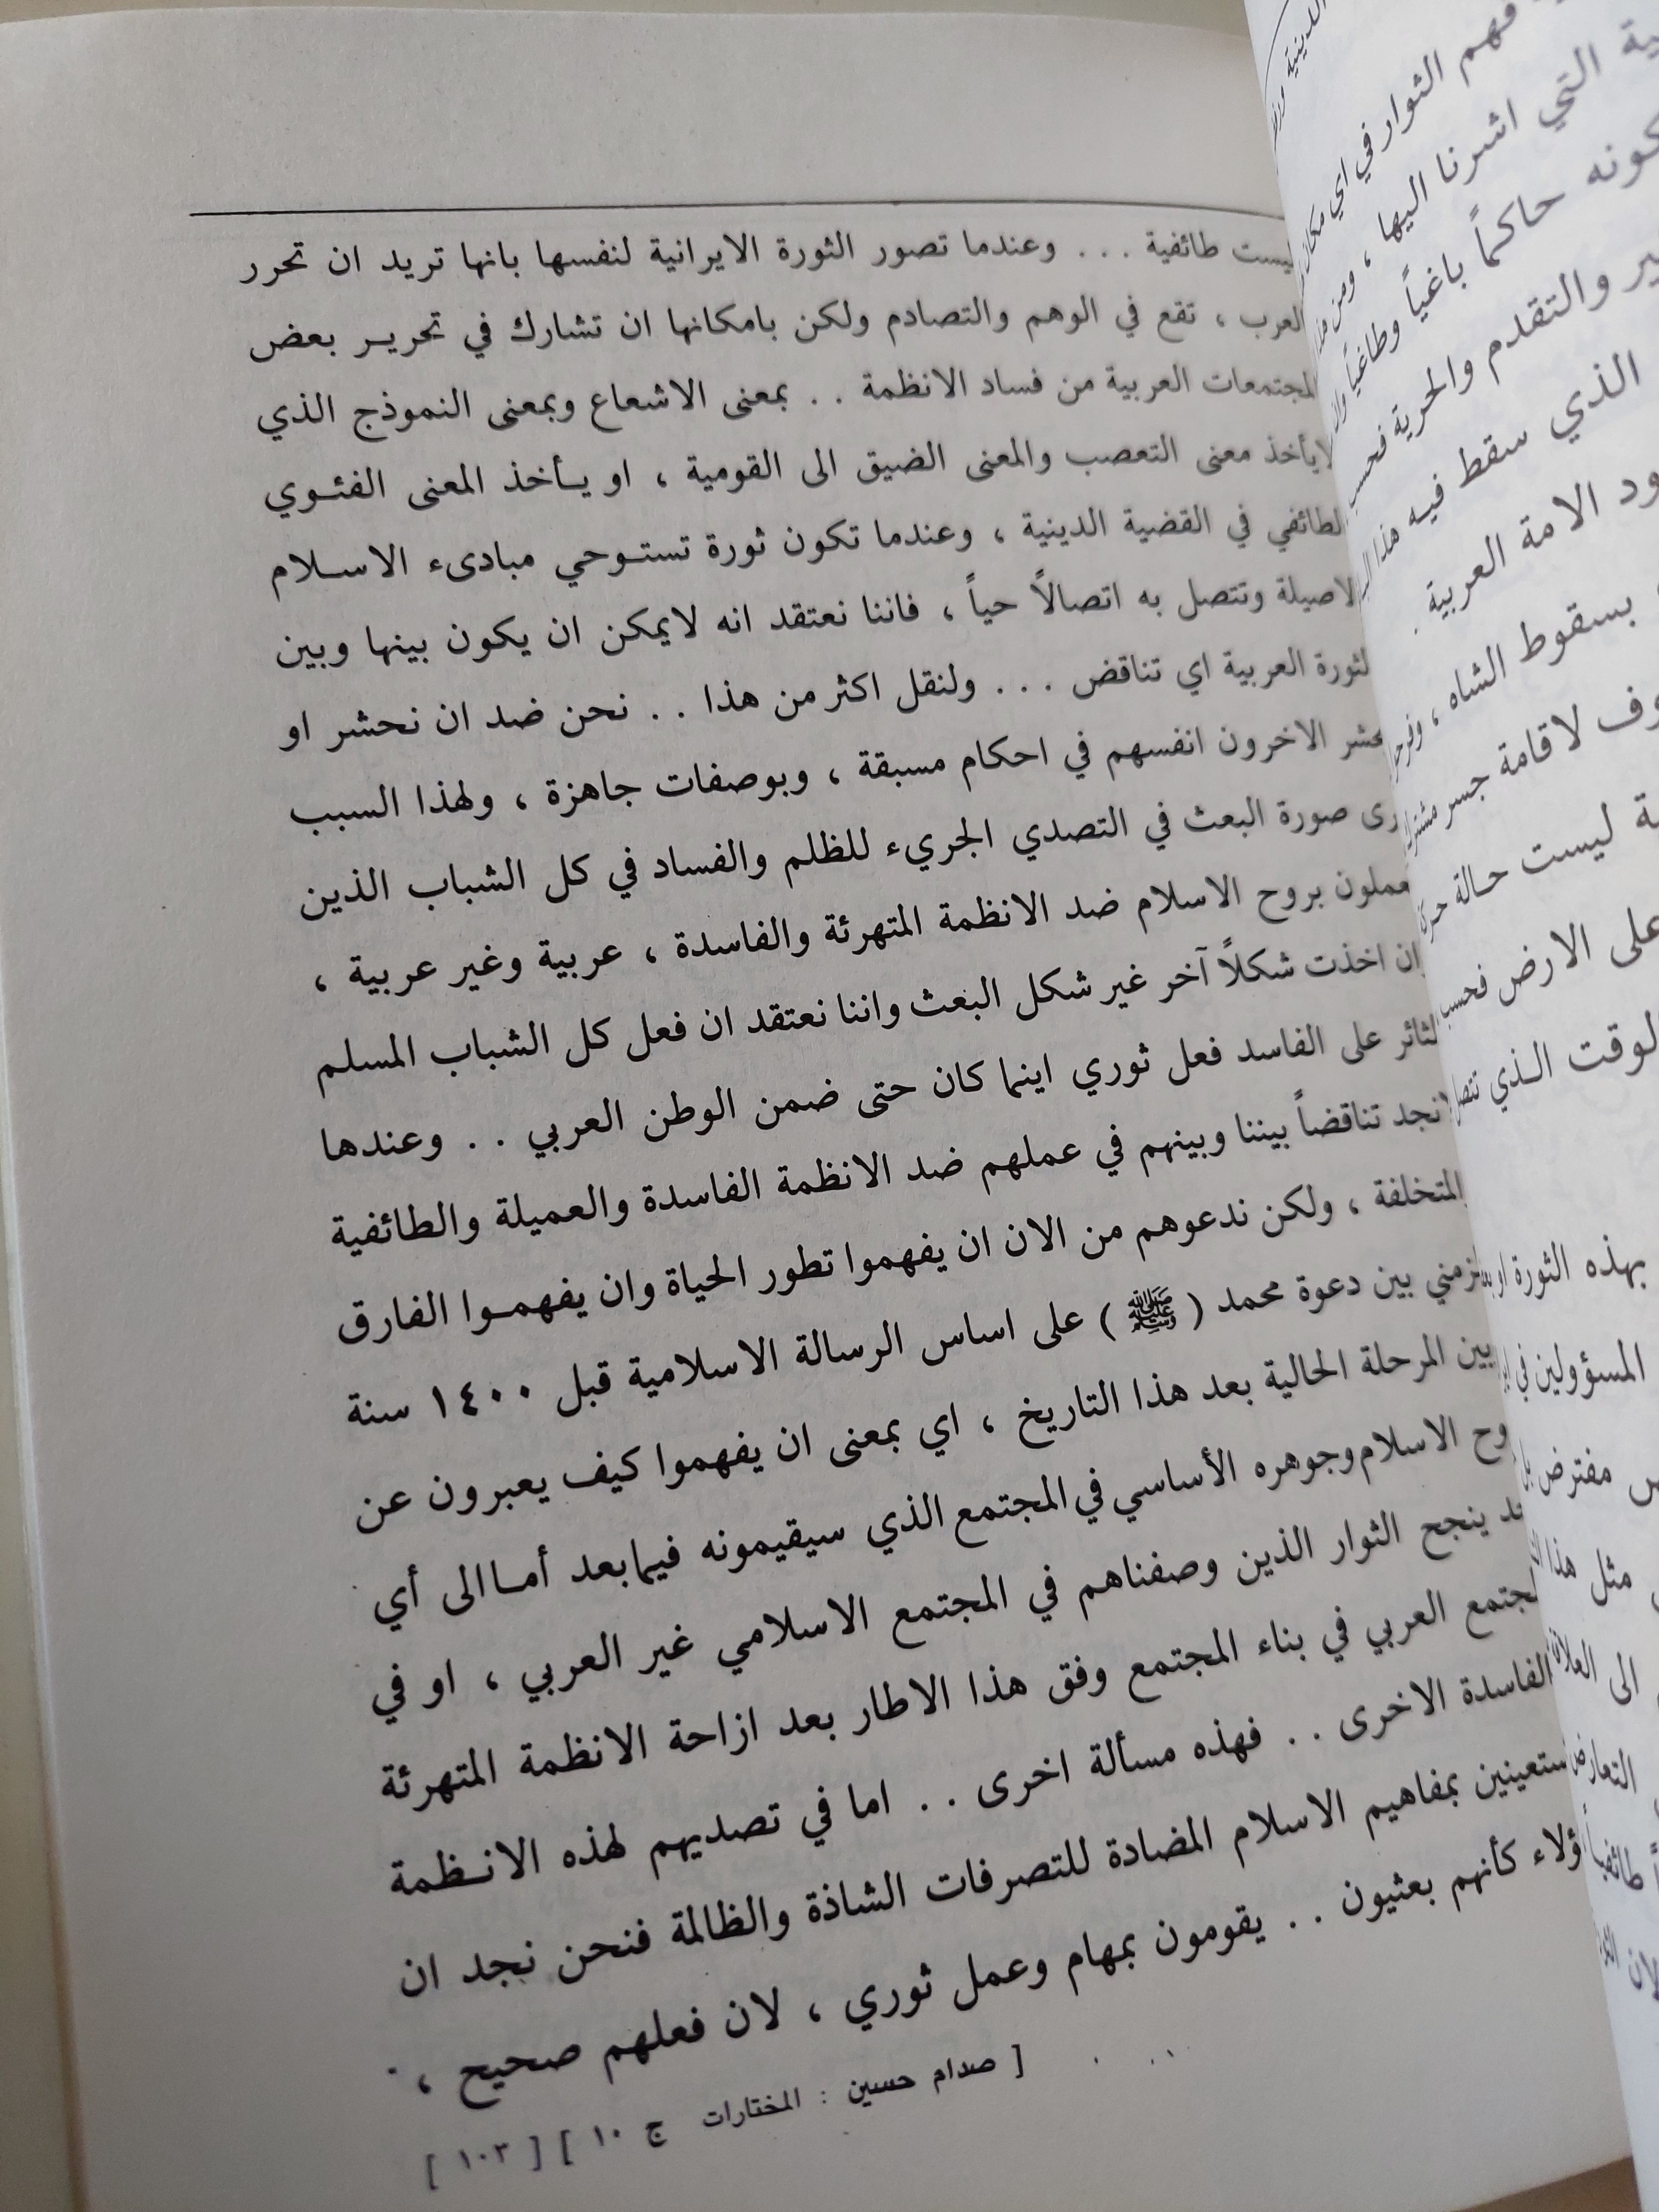 ليست طائفية . . . وعندما تصور الثورة الايرانية لنفسها بانها تريد ان تحرر
العرب ، تقع في الوهم والتصادم ولكن بامكانها ان تشارك في تحرير بعض
المجتمعات العربية من فساد الانظمة . . بمعنى الاشعاع وبمعنى النموذج الذي
لايأخذ معنى التعصب والمعنى الضيق الى القومية ، او يأخذ المعنى الفئوي
الطائفي في القضية الدينية ، وعندما تكون ثورة تستوحي مبادىء الاسلام
الاصيلة وتتصل به اتصالاً حياً ، فاننا نعتقد انه لايمكن ان يكون بينها وبين
الثورة العربية اي تناقض . . . ولنقل اكثر من هذا . . نحن ضد ان نحشر او
يحشر الاخرون انفسهم في احكام مسبقة ، وبوصفات جاهزة ، ولهذا السبب
صورة البعث في التصدي الجريء للظلم والفساد في كل الشباب الذين
يعملون بروح الاسلام ضد الانظمة المتهرئة والفاسدة ، عربية وغير عربية ،
وان اخذت شكلاً آخر غير شكل البعث واننا نعتقد ان فعل كل الشباب المسلم
الثائر على الفاسد فعل ثوري اينما كان حتى ضمن الوطن العربي . . وعندها
لانجد تناقضاً بيننا وبينهم في عملهم ضد الانظمة الفاسدة والعميلة والطائفية
والمتخلفة ، ولكن ندعوهم من الان ان يفهموا تطور الحياة وان يفهموا الفارق
الزمني بين دعوة محمد ( ﷺ ) على اساس الرسالة الاسلامية قبل ١٤٠٠ سنة
وبين المرحلة الحالية بعد هذا التاريخ ، اي بمعنى ان يفهموا كيف يعبرون عن
روح الاسلام وجوهره الأساسي في المجتمع الذي سيقيمونه فيما بعد أما الى أي
حد ينجح الثوار الذين وصفناهم في المجتمع الاسلامي غير العربي ، او في
المجتمع العربي في بناء المجتمع وفق هذا الاطار بعد ازاحة الانظمة المتهرئة
الفاسدة الاخرى . . فهذه مسألة اخرى . . اما في تصديهم لهذه الانظمة
مستعينين بمفاهيم الاسلام المضادة للتصرفات الشاذة والظالمة فنحن نجد ان
هؤلاء كأنهم بعثيون . . يقومون بمهام وعمل ثوري ، لان فعلهم صحيح ،
[ صدام حسين : المختارات ج ١٠ ] [ ١٠٣ ]
فهم الثوار في اي مكان
التي اشرنا اليها ، ومن
كونه حاكماً باغياً وطاغياً
والتقدم والحرية فحسب
الذي سقط فيه هذا
الامة العربية .
بسقوط الشاه ،
لاقامة جسر
ليست حالة
على الارض فحسب
الوقت الذي
بهذه الثورة
المسؤولين في
مفترض
مثل هذا
الى